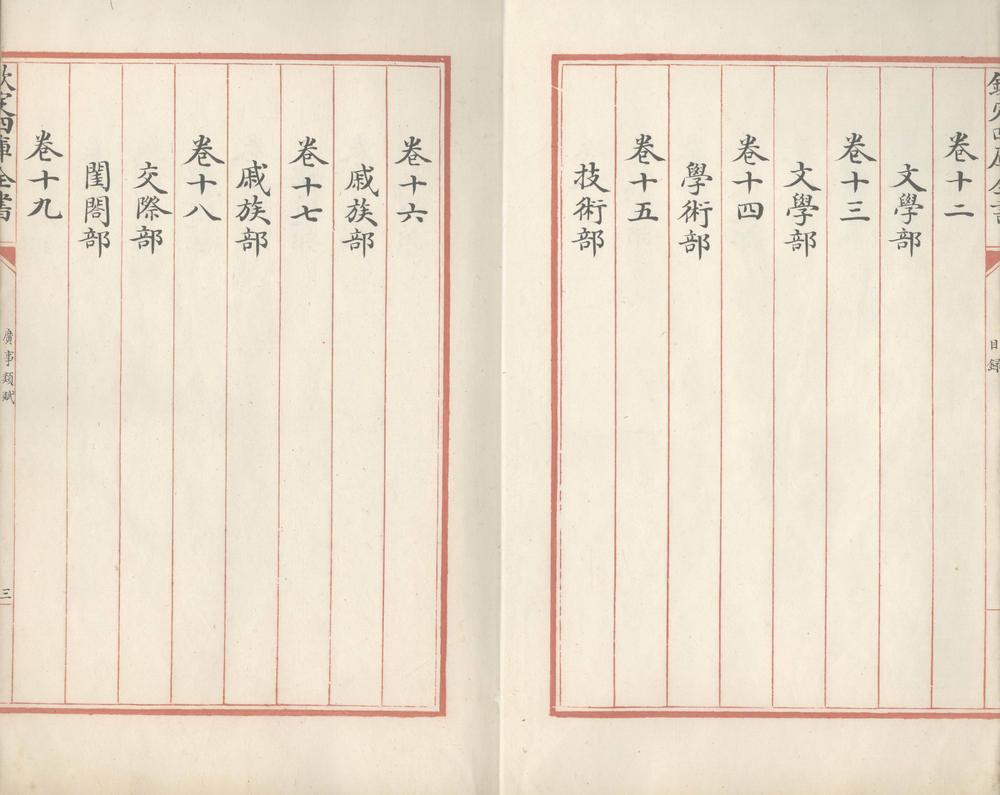 欽定四庫全書
目錄
卷十二
文學部
卷十三
文學部
卷十四
學術部
卷十五
技術部
卷十六
戚族部
卷十七
戚族部
卷十八
交際部
閨閤部
卷十九
欽定四庫全書
廣事類賦
三